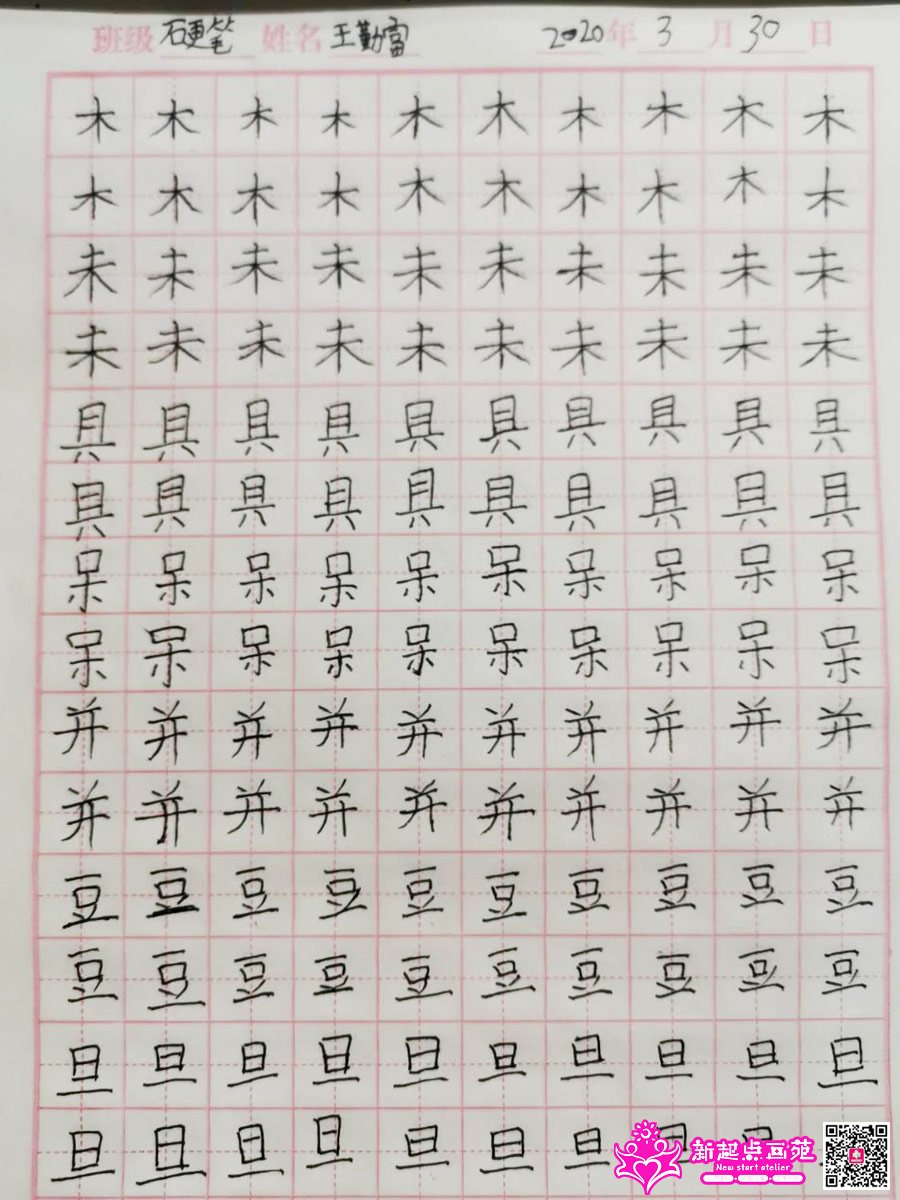 班级 硬笔 姓名 王勤富 2020年 3 月 30 日
木 木 木 木 木 木 木 木 木 木
木 木 木 木 木 木 木 木 木 木
未 未 未 未 未 未 未 未 未 未
未 未 未 未 未 未 未 未 未 未
具 具 具 具 具 具 具 具 具 具
具 具 具 具 具 具 具 具 具 具
呆 呆 呆 呆 呆 呆 呆 呆 呆 呆
呆 呆 呆 呆 呆 呆 呆 呆 呆 呆
并 并 并 并 并 并 并 并 并 并
并 并 并 并 并 并 并 并 并 并
豆 豆 豆 豆 豆 豆 豆 豆 豆 豆
豆 豆 豆 豆 豆 豆 豆 豆 豆 豆
旦 旦 旦 旦 旦 旦 旦 旦 旦 旦
旦 旦 旦 旦 旦 旦 旦
新起点画苑
New start atelier